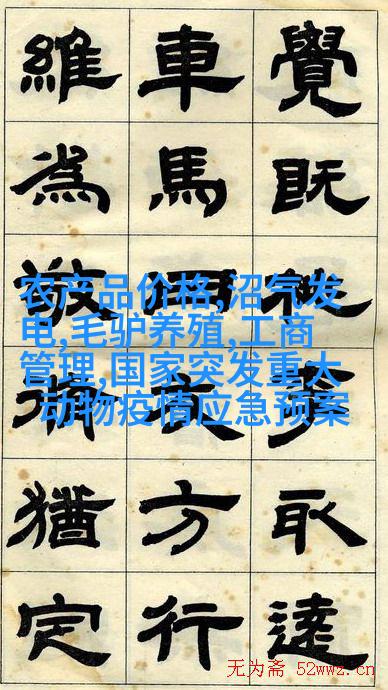 覺既取達
車馬衣方行
維為敬猶定
农产品价格,沼气发
电,毛驴养殖,工商
管理,国家突发重大
动物疫情应急预案
无为斋 52wwz.cn